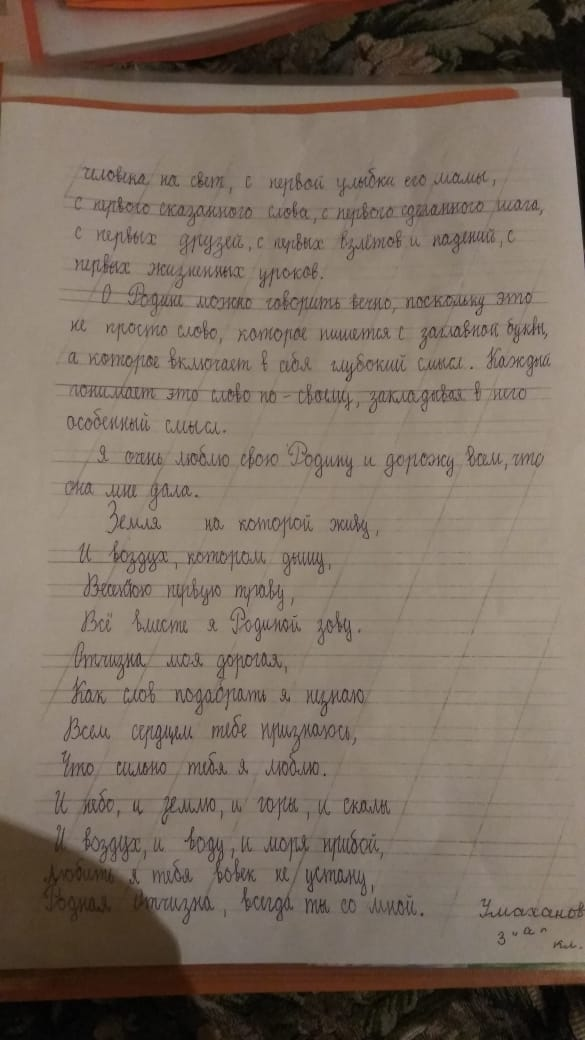 человека на свет, с первой улыбки его мамы,
с первого сказанного слова, с первого сделанного шага,
с первых друзей, с первых взлётов и падений, с
первых жизненных уроков.
О Родине можно говорить вечно, поскольку это
не просто слово, которое пишется с заглавной буквы,
а которое включает в себя глубокий смысл. Каждый
понимает это слово по-своему, закладывая в него
особенный смысл.
Я очень люблю свою Родину и дорожу всем, что
она мне дала.
Земля на которой живу,
И воздух, котором дышу,
Весеннюю первую траву,
Всё вместе я Родиной зову.
Отчизна моя дорогая,
Как слов подабрать я незнаю
Всем сердцем тебе признаюсь,
Что сильно тебя я люблю.
И небо, и землю, и горы, и скалы
И воздух, и воду, и моря прибой,
любить я тебя вовек не устану,
Родная Отчизна, всегда ты со мной.
Умаханов
3 "а" кл.